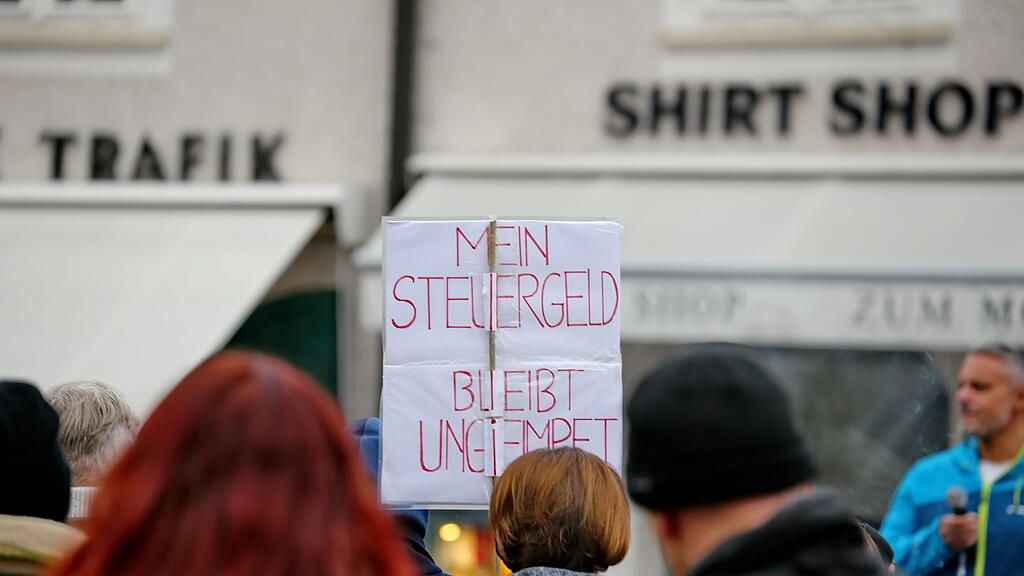 TRAFIK
SHIRT SHOP
MEIN
STEUERGELD
BLEIBT
UNGEIMPFT
SHOP
ZUM